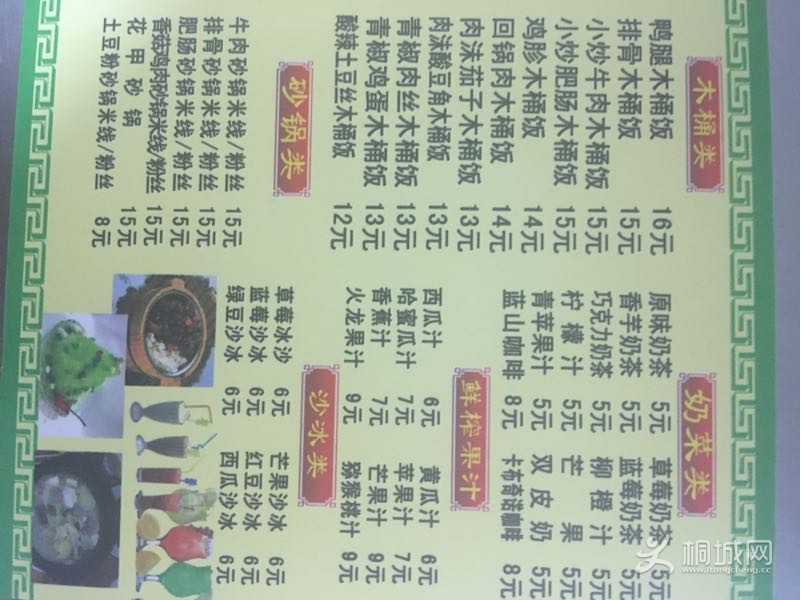 木桶类
鸭腿木桶饭 16元
排骨木桶饭 15元
小炒牛肉木桶饭 15元
小炒肥肠木桶饭 15元
鸡胗木桶饭 14元
回锅肉木桶饭 14元
肉沫茄子木桶饭 13元
肉沫酸豆角木桶饭 13元
青椒肉丝木桶饭 13元
青椒鸡蛋木桶饭 13元
酸辣土豆丝木桶饭 12元
砂锅类
牛肉砂锅米线/粉丝 15元
排骨砂锅米线/粉丝 15元
肥肠砂锅米线/粉丝 15元
香菇鸡肉砂锅米线/粉丝 15元
花甲砂锅 15元
土豆粉砂锅米线/粉丝 8元
奶菜类
原味奶茶 5元 草莓奶茶 5元
香芋奶茶 5元 蓝莓奶茶 5元
巧克力奶茶 5元 柳橙汁 5元
柠檬汁 5元 芒果 5元
青苹果汁 5元 双皮奶 5元
蓝山咖啡 8元 卡布奇诺咖啡 8元
鲜榨果汁
西瓜汁 6元 黄瓜汁 6元
哈蜜瓜汁 7元 苹果汁 7元
香蕉汁 7元 芒果汁 9元
火龙果汁 9元 猕猴桃汁 9元
沙冰类
草莓冰沙 6元 芒果沙冰 6元
蓝莓沙冰 6元 红豆沙冰 6元
绿豆沙冰 6元 西瓜沙冰 6元
桐城网
www.itongcheng.cc